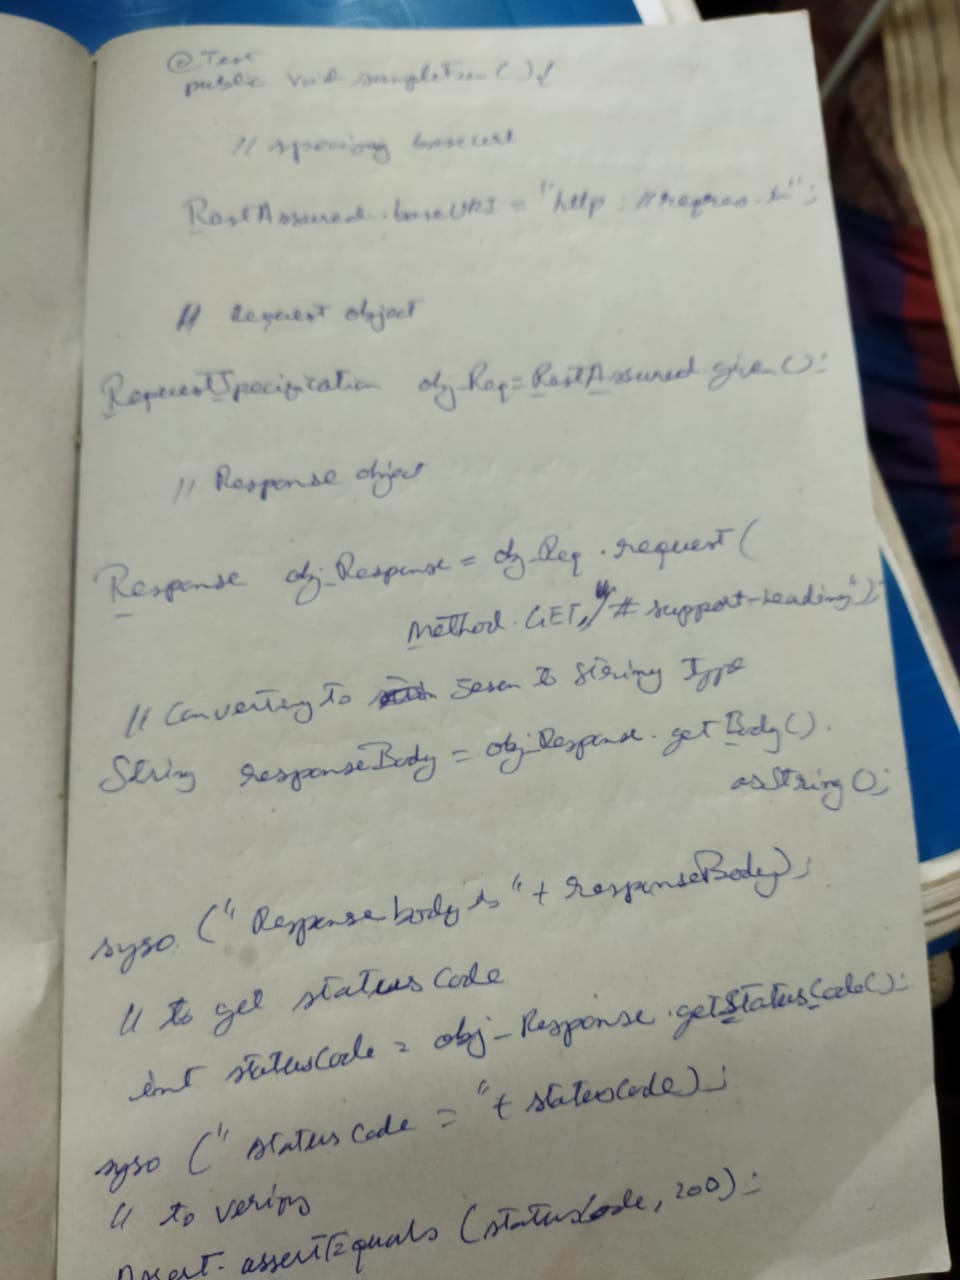 @Test
public void sampleTest(){
// specifing baseurl
RestAssured.baseURI = "http://reqres.in";
// Request object
RequestSpecification obj_Req=RestAssured.given();
// Response object
Response obj_Response = obj_Req.request(
Method.GET,"/#support-heading");
// Converting to Json to String Type
String responseBody = obj_Response.getBody().
asString();
syso ("Response body is "+ responseBody);
// to get status code
int statusCode = obj_Response.getStatusCode();
syso ("status code = "+ statusCode);
// to verify
Assert.assertEquals (statusCode, 200);